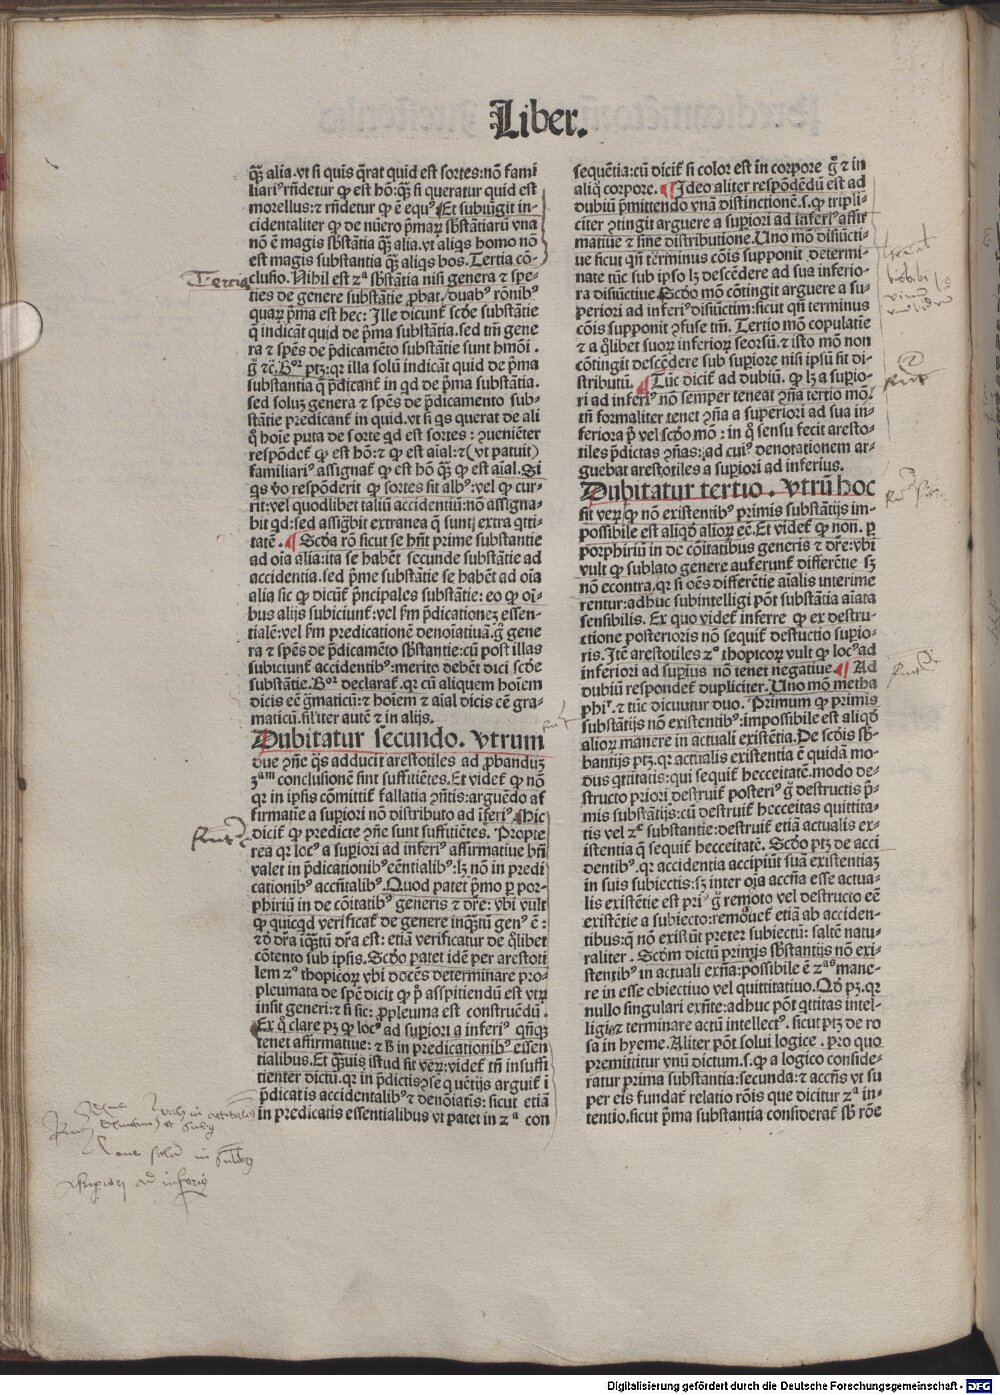 Liber.
q̄ꝫ alia.vt si quis q̄rat quid est sortes:nō fami
liariꝰ rn̄detur ꝙ est hō:q̄ꝫ si queratur quid est
morellus:⁊ rn̄detur ꝙ ē equꝰ Et subiūgit in-
cidentaliter ꝙ de nūero p̄maꝝ sb̄stātiarū vna
nō ē magis sb̄stātia q̄ꝫ alia.vt aliqs homo nō
est magis substantia q̄ꝫ aliqs bos.Tertia cō-
clusio.Nihil est zᵃ sb̄stātia nisi genera ⁊ spe-
Tertia
ties de genere substātie ꝓbat duabꝰ rōnibꝰ
quaꝝ p̄ma est hec:Ille dicunt̄ scd̄e substātie
q̄ indicāt quid de p̄ma substātia.sed tm̄ gene
ra ⁊ spēs de p̄dicamēto substātie sunt hmōi.
ḡ ⁊c̄.Bᵒʳ ptꝫ:qꝛ illa solū indicāt quid de p̄ma
substantia q̄ p̄dicant̄ in qd de p̄ma substātia.
sed soluꝫ genera ⁊ spēs de p̄dicamento sub-
stātie predicant̄ in quid.vt si qs querat de ali
q̄ hoīe puta de sorte qd est sortes:ꝯueniēter
respōdet̄ ꝙ est hō:⁊ ꝙ est aīal:⁊(vt patuit)
familiariꝰ assignat̄ ꝙ est hō q̄ꝫ ꝙ est aīal.Si
qs v̄o respōderit ꝙ sortes sit albꝰ:vel ꝙ cur-
rit:vel quodlibet taliū accidentiū:nō assigna-
bit qd:sed assig̅bit extranea q̄ sunt extra qtti-
tatē.¶ Scd̄a rō sicut se hn̄t prime substantie
ad oīa alia:ita se habēt secunde substātie ad
accidentia.sed p̄me substātie se habēt ad oīa
alia sic ꝙ dicūt̄ p̄ncipales substātie:eo ꝙ oī-
bus alijs subiciunt̄:vel s̄m p̄dicationeꝫ essen-
tialē:vel s̄m predicationē denoīatiuā.ḡ gene
ra ⁊ spēs de p̄dicamēto sb̄stantie:cū post illas
subiciunt̄ accidentibꝰ:merito debēt dici scd̄e
substātie.Bᵒʳ declarat̄.qꝛ cū aliquem hoīem
dicis eē g̅maticū:⁊ hoīem ⁊ aīal dicis eē gra-
maticū.sil'iter autē ⁊ in alijs.
Dubitatur secundo. Vtrum
due ꝯn̄e q̄s adducit arestotiles ad ꝓbanduꝫ
ꝫᵃᵐ conclusionē sint suffitiētes.Et videt̄ ꝙ nō
qꝛ in ipsis cōmittit̄ fallatia ꝯn̄tis:arguēdo af
firmatīe a supīori nō distributo ad īferiꝰ. Hic
dicit̄ ꝙ predicte ꝯn̄e sunt suffitiētes. Propte
rea qꝛ locꝰ a supīori ad inferiꝰ affirmatiue bn̄
valet in p̄dicationibꝰ eēntialibꝰ:lꝫ nō in predi
cationibꝰ accn̄talibꝰ.Quod patet p̄mo ꝑ por-
phiriū in de cōitatibꝰ generis ⁊ dr̄e:vbi vult
ꝙ quicqd verificat̄ de genere inq̄ꝫtū genꝰ ē:
⁊ d' dr̄a īq̄ꝫtū dr̄a est:etiā verificatur de q̄libet
cōtento sub ipsis.Scd̄o patet idē per arestoti
lem zᵒ thopicoꝝ vbi docēs determinare pro-
pleumata de spē dicit ꝙ pᵒ asspitiendū est vtꝝ
insit generi:⁊ si sic:ꝓpleuma est construēdū.
Ex q̄ clare pꝫ ꝙ locꝰ ad supīori a inferiꝰ qn̄qꝫ
tenet affirmatiue:⁊ B in predicationibꝰ essen
tialibus.Et q̄ꝫuis istud sit veꝝ:videt̄ tn̄ insuffi
tienter dictū.qꝛ in p̄dictis ꝯsequētijs arguit̄ ī
p̄dicatīs accidentalibꝰ ⁊ denoīatīs:sicut etiā
in predicatis essentialibus vt patet in zᵃ con
sequētia:cū dicit̄ si color est in corpore ḡ ⁊ in
aliq̄ corpore.¶ Ideo aliter respōdēdū est ad
dubiū p̄mittendo vnā distinctionē.s.ꝙ tripli-
citer ꝯtingit arguere a supīori ad inferiꝰ affir
matiue ⁊ sine distributione.Vno mō disiūcti-
ue sicut qn̄ terminus cōis supponit determi-
nate tūc sub ipso lꝫ descēdere ad sua inferio-
ra disiūctiue.Scd̄o mō cōtingit arguere a su-
ꝑiori ad inferiꝰ disiūctim:sicut qn̄ terminus
cōis supponit ꝯfuse tm̄. Tertio mō copulatīe
⁊ a q̄libet suoꝝ inferioꝝ seorsū.⁊ isto mō non
cōtingit descēdere sub supīore nisi ipsū sit di-
stributū.¶ Tūc dicit̄ ad dubiū. ꝙ lꝫ a supīo-
ri ad inferiꝰ nō semper teneat ꝯn̄a tertio mō:
tn̄ formaliter tenet ꝯn̄a a superiori ad sua in-
feriora pᵒ vel scd̄o mō:in q̄ sensu fecit aresto-
tiles p̄dictas ꝯn̄as:ad cuiꝰ denotationem ar-
guebat arestotiles a supīori ad inferius.
Dubitatur tertio. Vtrū hoc
sit veꝝ ꝙ nō existentibꝰ primis substātijs im-
possibile est aliqd̄ alioꝝ eē.Et videt̄ ꝙ non. ꝑ
porphiriū in de cōitatibus generis ⁊ dr̄e:vbi
vult ꝙ sublato genere auferunt̄ differētie sꝫ
nō econtra.qꝛ si oēs differētie aīalis interime
rentur:adhuc subintelligi pōt substātia aīata
sensibilis. Ex quo videt̄ inferre ꝙ ex destru-
ctione posterioris nō sequit̄ destuctio supīo-
ris.Itē arestotiles zᵒ thopicoꝝ vult ꝙ locꝰ ad
inferiori ad supīus nō tenet negatiue.¶ Ad
dubiū respondet̄ dupliciter.Uno mō metha
phiᶜ.⁊ tūc dicuutur duo. Primum ꝙ primis
substātijs nō existentibꝰ:impossibile est aliqd̄
alioꝝ manere in actuali existētia.De scd̄is sb̄-
stantijs ptꝫ.qꝛ actualis existentia ē quidā mo-
dus qttitatis:qui sequit̄ hecceitatē.modo de-
structo priori destruit̄ posteriꝰ ḡ destructis p̄-
mis substātijs:cū destruit̄ hecceitas quittita-
tis vel zᵉ substantie:destruit̄ etiā actualis ex-
istentia q̄ sequit̄ hecceitatē. Scd̄o ptꝫ de acci
dentibꝰ.qꝛ accidentia accipiūt suā existentiaꝫ
in suis subiectis:sꝫ inter oīa accn̄a esse actua-
lis existētie est priꝰ ḡ remoto vel destructo eē
existētie a subiecto:remouet̄ etiā ab acciden-
tibus:q̄ nō existūt preter subiectū: saltē natu-
raliter. Scd̄m dictū primis sb̄stantijs nō exi-
stentibꝰ in actuali exn̄a:possibile ē zᵃˢ mane-
re in esse obiectiuo vel quittitatiuo.Qd̄ pꝫ.qꝛ
nullo singulari exn̄te:adhuc pōt qttitas intel-
ligi⁊ terminare actū intellectꝰ. sicut ptꝫ de ro
sa in hyeme.Aliter pōt solui logice . pro quo
premittitur vnū dictum.s.ꝙ a logico conside-
ratur prima substantia:secunda:⁊ accn̄s vt su
per eis fundat̄ relatio rōis que dicitur zᵃ in-
tentio.sicut p̄ma substantia considerat̄ sb̄ rōe
a superiori ad inferius
Digitalisierung gefördert durch die Deutsche Forschungsgemeinschaft - DFG